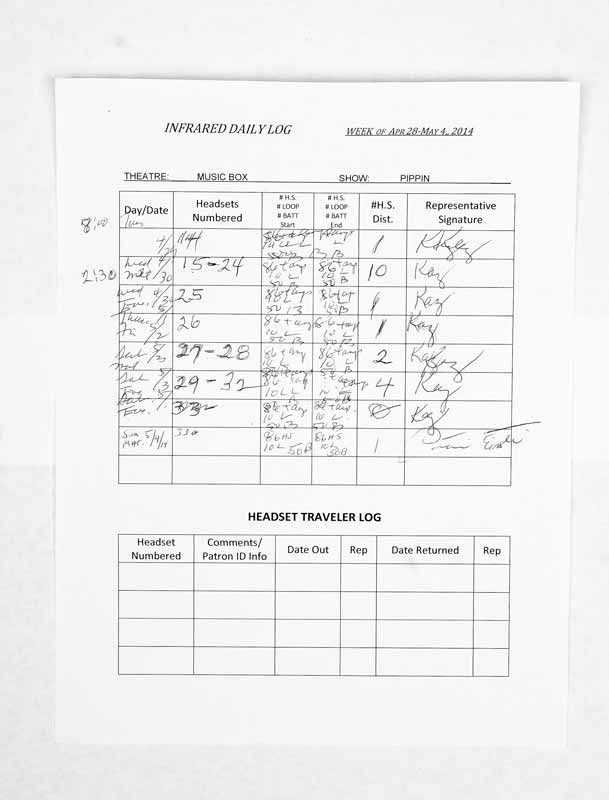 INFRARED DAILY LOG WEEK OF APR 28-MAY 4, 2014
THEATRE: MUSIC BOX SHOW: PIPPIN
Day/Date Headsets Numbered # H.S. # LOOP # BATT Start # H.S. # LOOP # BATT End #H.S. Dist. Representative Signature
8:00 Tues 4/29 1
2:30 Wed Mat 4/30 15-24 86+ 10 L 50 B 86+ 10 L 50 B 10 Kay
Wed Eve. 4/30 25 86+ 10 L 50 B 86+ 10 L 50 B 1 Kay
Thurs 5/1 Fri 5/2 26 86+ 10 L 50 B 86+ 10 L 50 B 1 Kay
Sat 5/3 27-28 86+ 10 L 50 B 86+ 10 L 2
Sat 5/3 Eve 29-32 86+ 10 L 4 Kay
Eve. 86+ 10 L 50 B 86+ 10 L 50 B Kay
Sun 5/4/14 MAT. 86 HS 10L 50B 86 HS 10L 50B 1
HEADSET TRAVELER LOG
Headset Numbered Comments/ Patron ID Info Date Out Rep Date Returned Rep